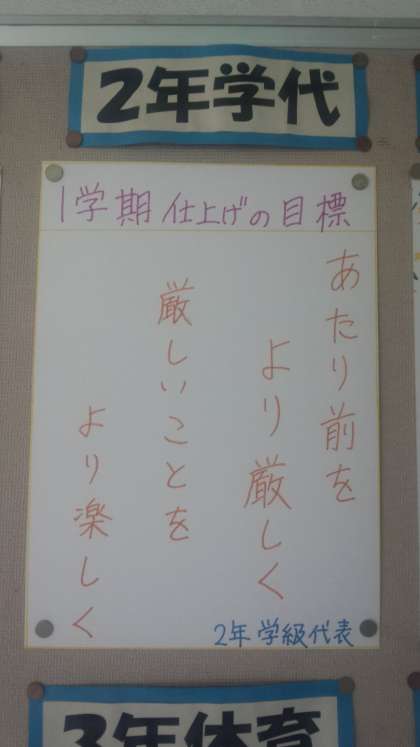 2年学代
1学期仕上げの目標
あたり前を
より厳しく
厳しいことを
より楽しく
2年学級代表
3年体育